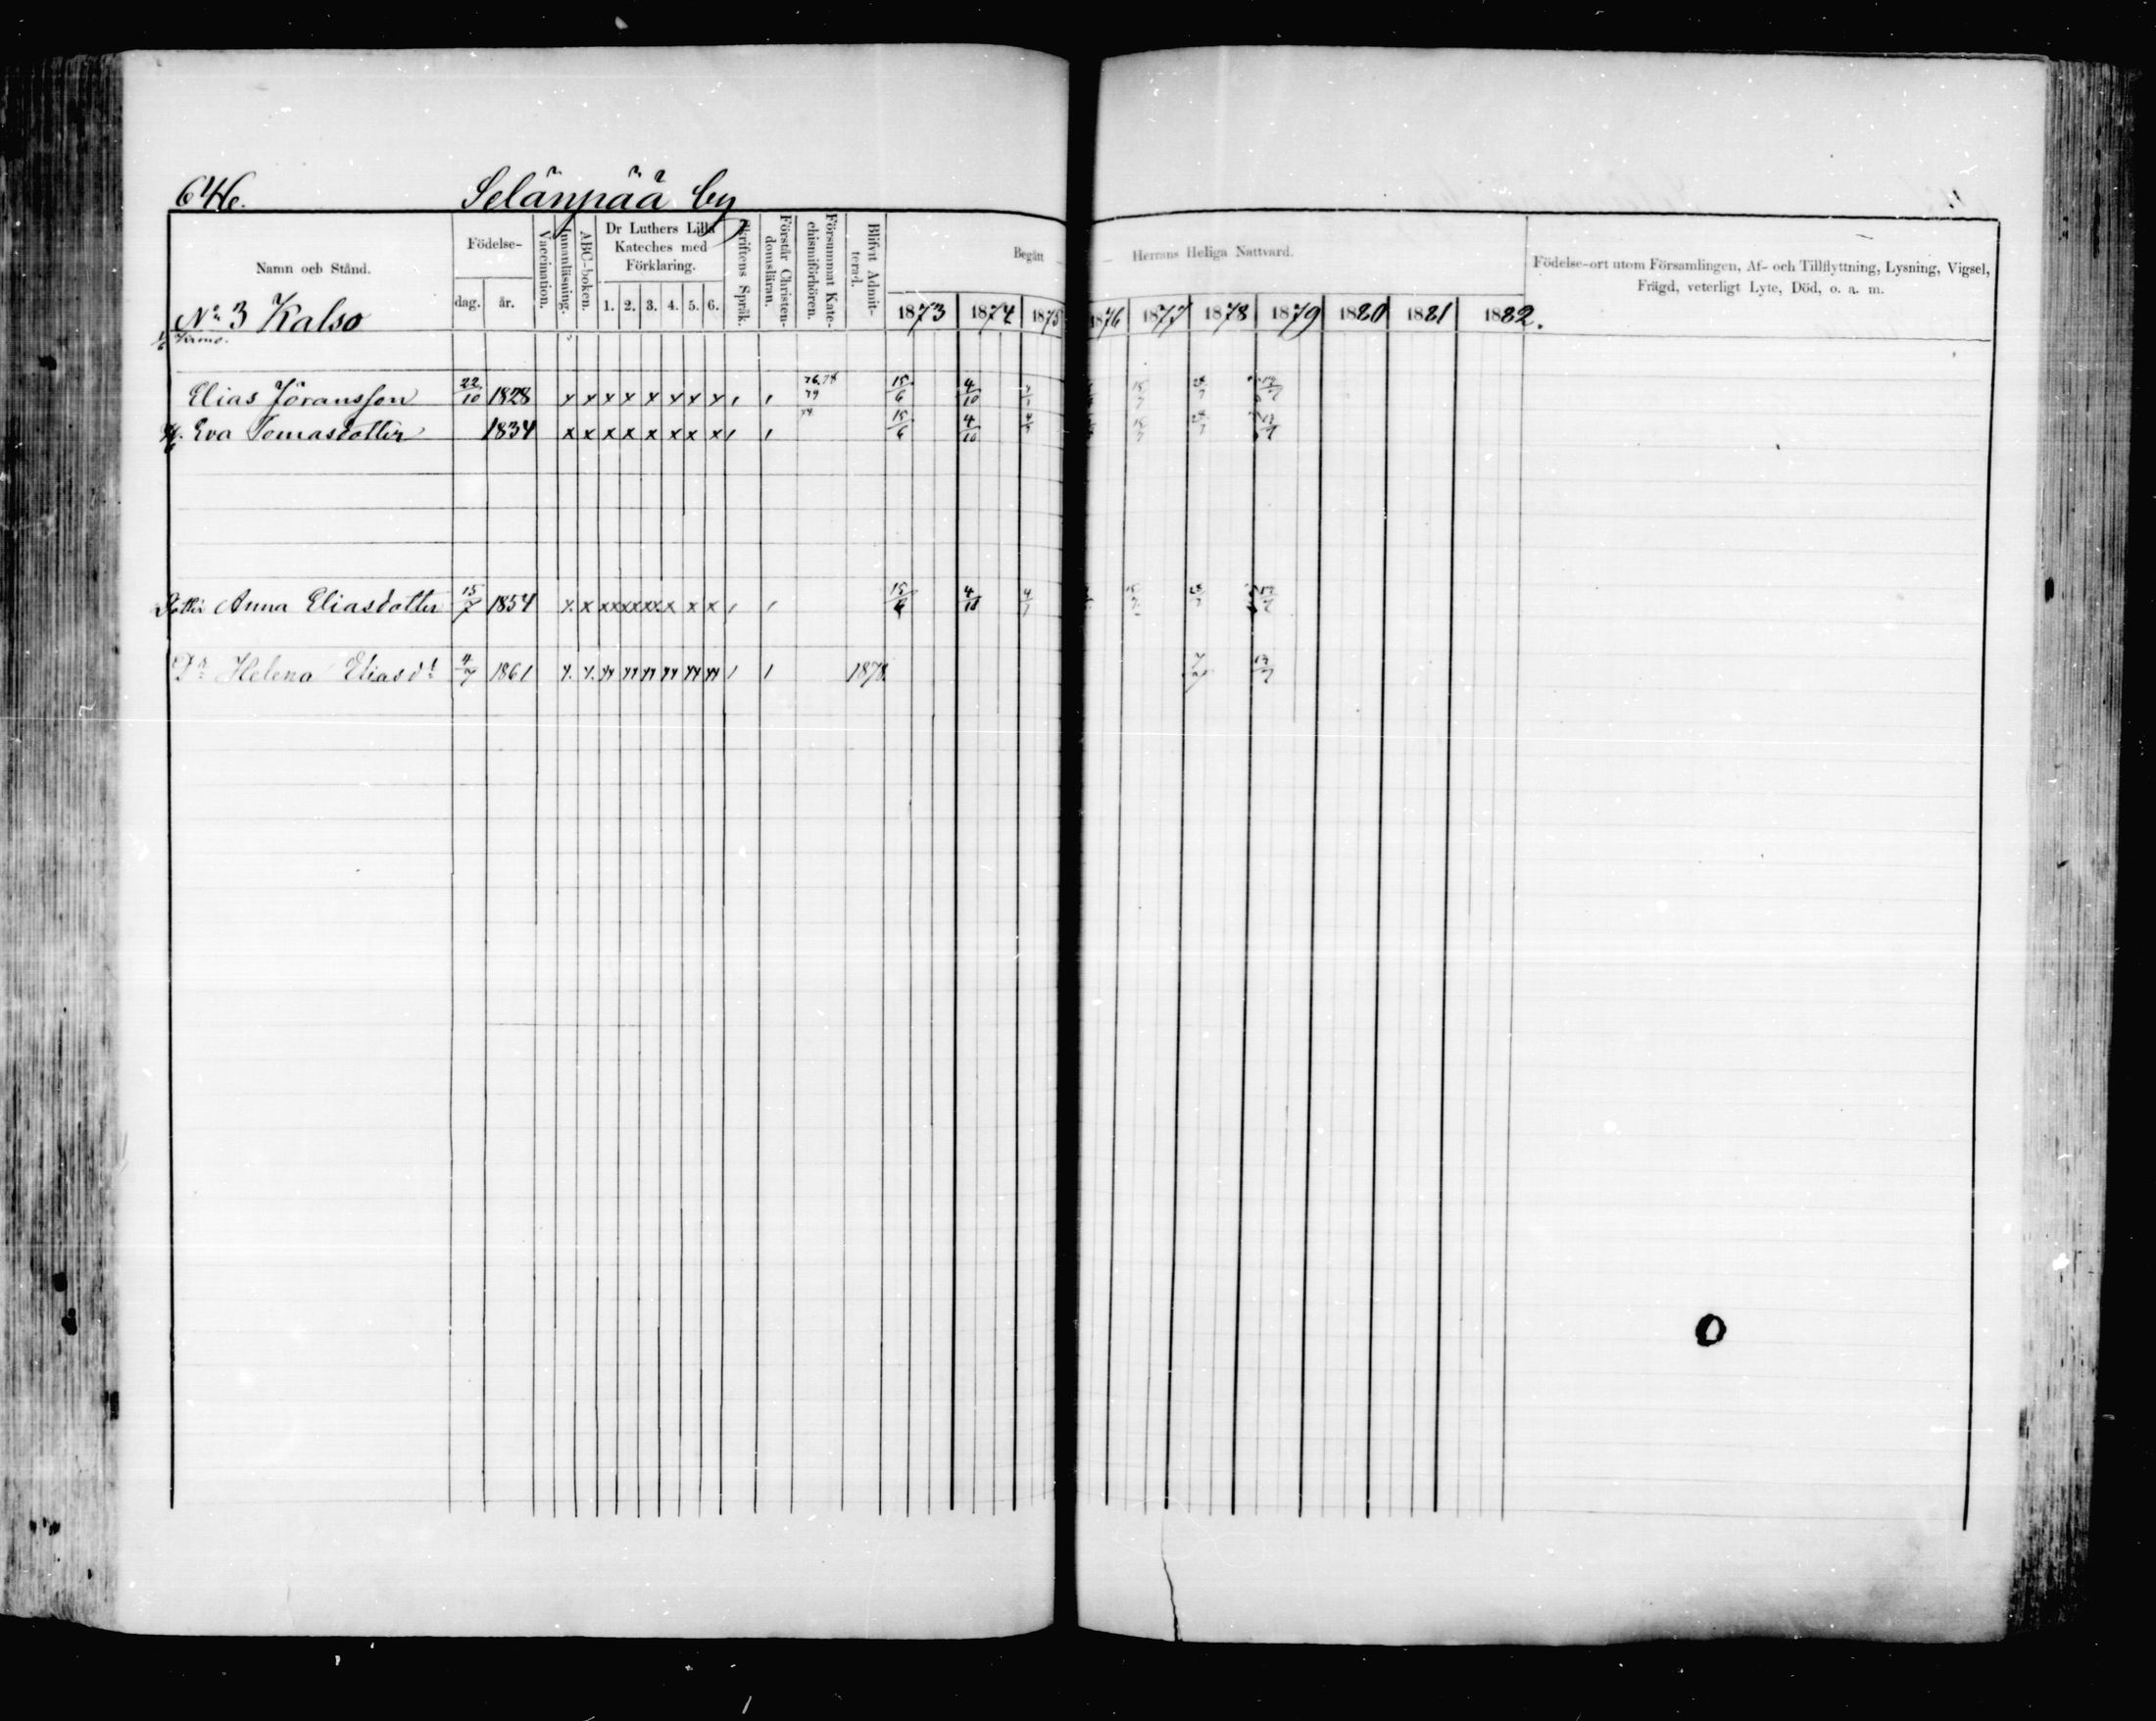 646. Selänpää by
Namn och Stånd. Födelse- dag. år. Vaccination. Innanläsning. ABC-boken. Dr Luthers Lilla Kateches med Förklaring. 1. 2. 3. 4. 5. 6. Skriftens Språk. Förstår Christendomsläran. Försummat Katechismiförhören. Blifvit Admitterad. Begått Herrans Heliga Nattvard. 1873 1874 1875 1876 1877 1878 1879 1880 1881 1882. Födelse-ort utom Församlingen, Af- och Tillflyttning, Lysning, Vigsel, Frägd, veterligt Lyte, Död, o. a. m.
No 3 Kalso
Elias Jöransson 22/10 1828 x x x x x x x x 76.78 79 15/6 4/10
H. Eva Tomasdotter 1834 x x x x x x x x 15/6 4/10
Dotter Anna Eliasdotter 15/7 1854 x x xx xx xx x x x 15/6 4/10 4/7
Dr Helena Eliasdr 4/7 1861 x x xx xx xx xx xx xx 1878